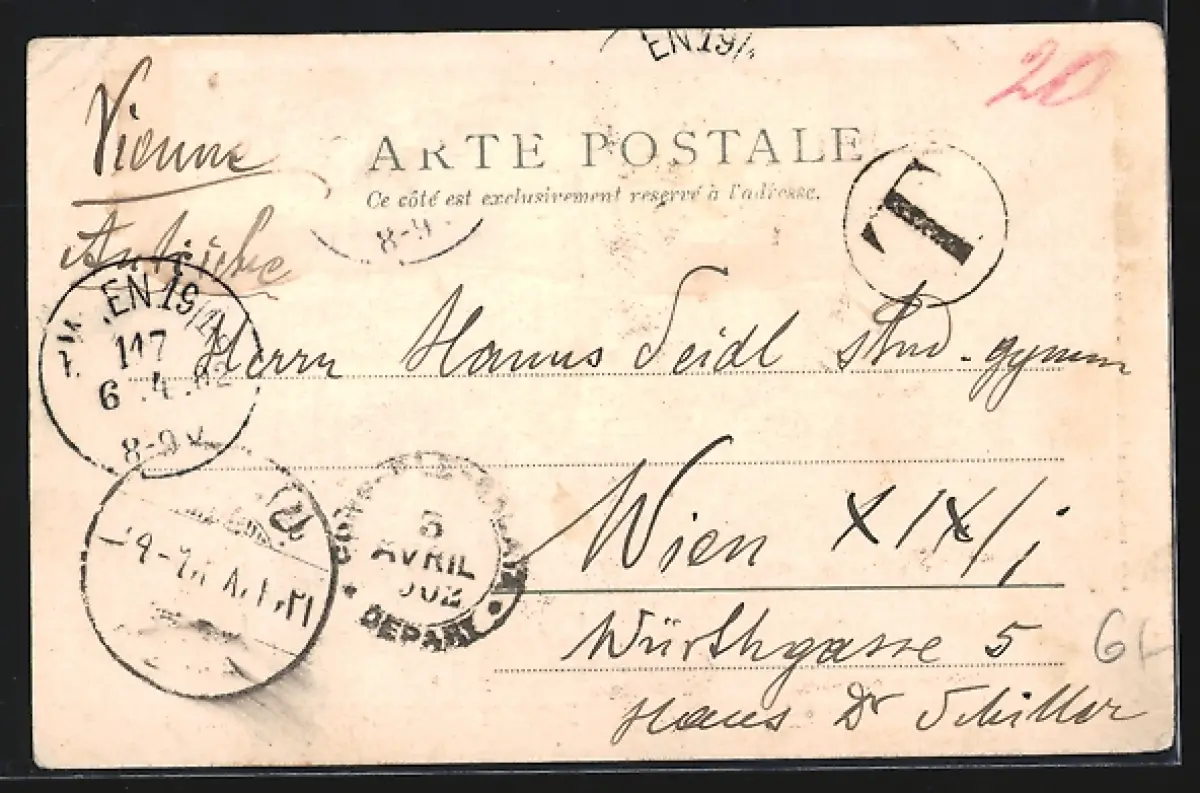 EN 19/
20
Vienne
Autriche
ARTE POSTALE
Ce côté est exclusivement reservé à l'adresse.
T
8-9
EN 19/
117
6.4.02
8-9V
Herrn Hanns Seidl stud. gymn
Wien XIX/1
Würthgasse 5
Haus Dr Schiller
3
AVRIL
902
DEPART